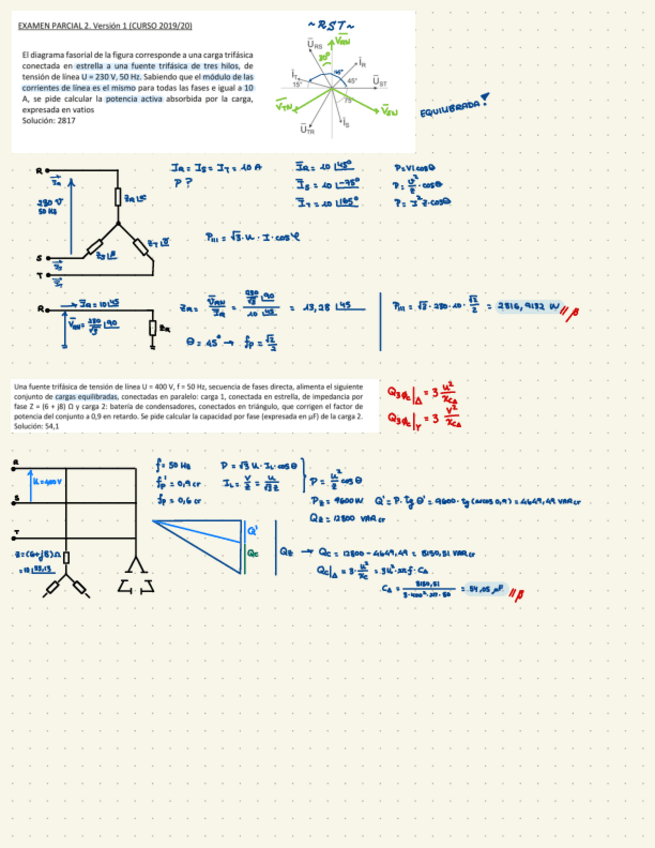 EXAMEN PARCIAL 2. Versión 1 (CURSO 2019/20)
~RST~
El diagrama fasorial de la figura corresponde a una carga trifásica
conectada en estrella a una fuente trifásica de tres hilos, de
tensión de línea U = 230 V, 50 Hz. Sabiendo que el módulo de las
corrientes de línea es el mismo para todas las fases e igual a 10
A, se pide calcular la potencia activa absorbida por la carga,
expresada en vatios
Solución: 2817
U_RS
V_RN
30°
I_R
I_T
15°
45°
U_ST
V_TN
75°
V_SN
I_S
U_TR
EQUILIBRADA!
R
I_R
230 V
50 Hz
S
T
I_R = I_S = I_T = 10 A
P?
I_R = 10 |45°
I_S = 10 |-75°
I_T = 10 |165°
P = V I cosθ
P = V²/Z · cosθ
P = I² Z · cosθ
P_III = √3 · U · I · cosφ
R
I_R = 10 |45
V_RN = 230/√3 |90
Z_R
Z_R = V_RN/I_R = (230/√3 |90)/(10 |45) = 13,28 |45
θ = 45° → fp = √2/2
P_III = √3 · 230 · 10 · √2/2 = 2816,9132 W
Una fuente trifásica de tensión de línea U = 400 V, f = 50 Hz, secuencia de fases directa, alimenta el siguiente
conjunto de cargas equilibradas, conectadas en paralelo: carga 1, conectada en estrella, de impedancia por
fase Z = (6 + j8) Ω y carga 2: batería de condensadores, conectados en triángulo, que corrigen el factor de
potencia del conjunto a 0,9 en retardo. Se pide calcular la capacidad por fase (expresada en μF) de la carga 2.
Solución: 54,1
Q_3φc|Δ = 3 U²/X_CΔ
Q_3φc|Y = 3 V²/X_CΔ
R
U = 400 V
S
T
Z = (6+j8) Ω
= 10 |53,13
f = 50 Hz
fp' = 0,9 cr
fp = 0,6 cr
P = √3 U · I_L · cosθ
I_L = V/Z = U/√3Z
P = U²/Z cosθ
P_Z = 9600 W
Q' = P · tg θ' = 9600 · tg (arcos 0,9) = 4649,49 VAR cr
Q_Z = 12800 VAR cr
Q'
Q_C
Q_Z → Q_C = 12800 - 4649,49 = 8150,51 VAR cr
Q_C|Δ = 3 · U²/X_C = 3U² · 2πf · C_Δ
C_Δ = 8150,51/(3 · 400² · 2π · 50) = 54,05 μF